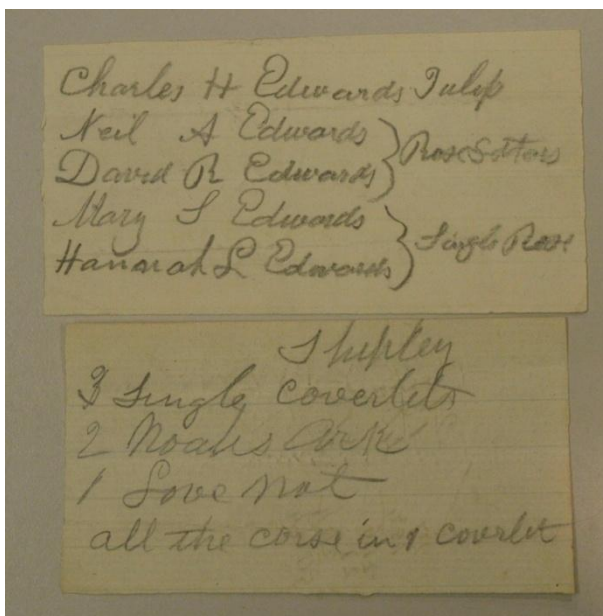 Charles H Edwards Tulip
Neil A Edwards
David R Edwards
Rose
Mary S Edwards
Hannah L Edwards
Single Rose
Shipley
3 Single Coverlets
2 Noahs Ark
1 Love Not
all the corse in 1 coverlet